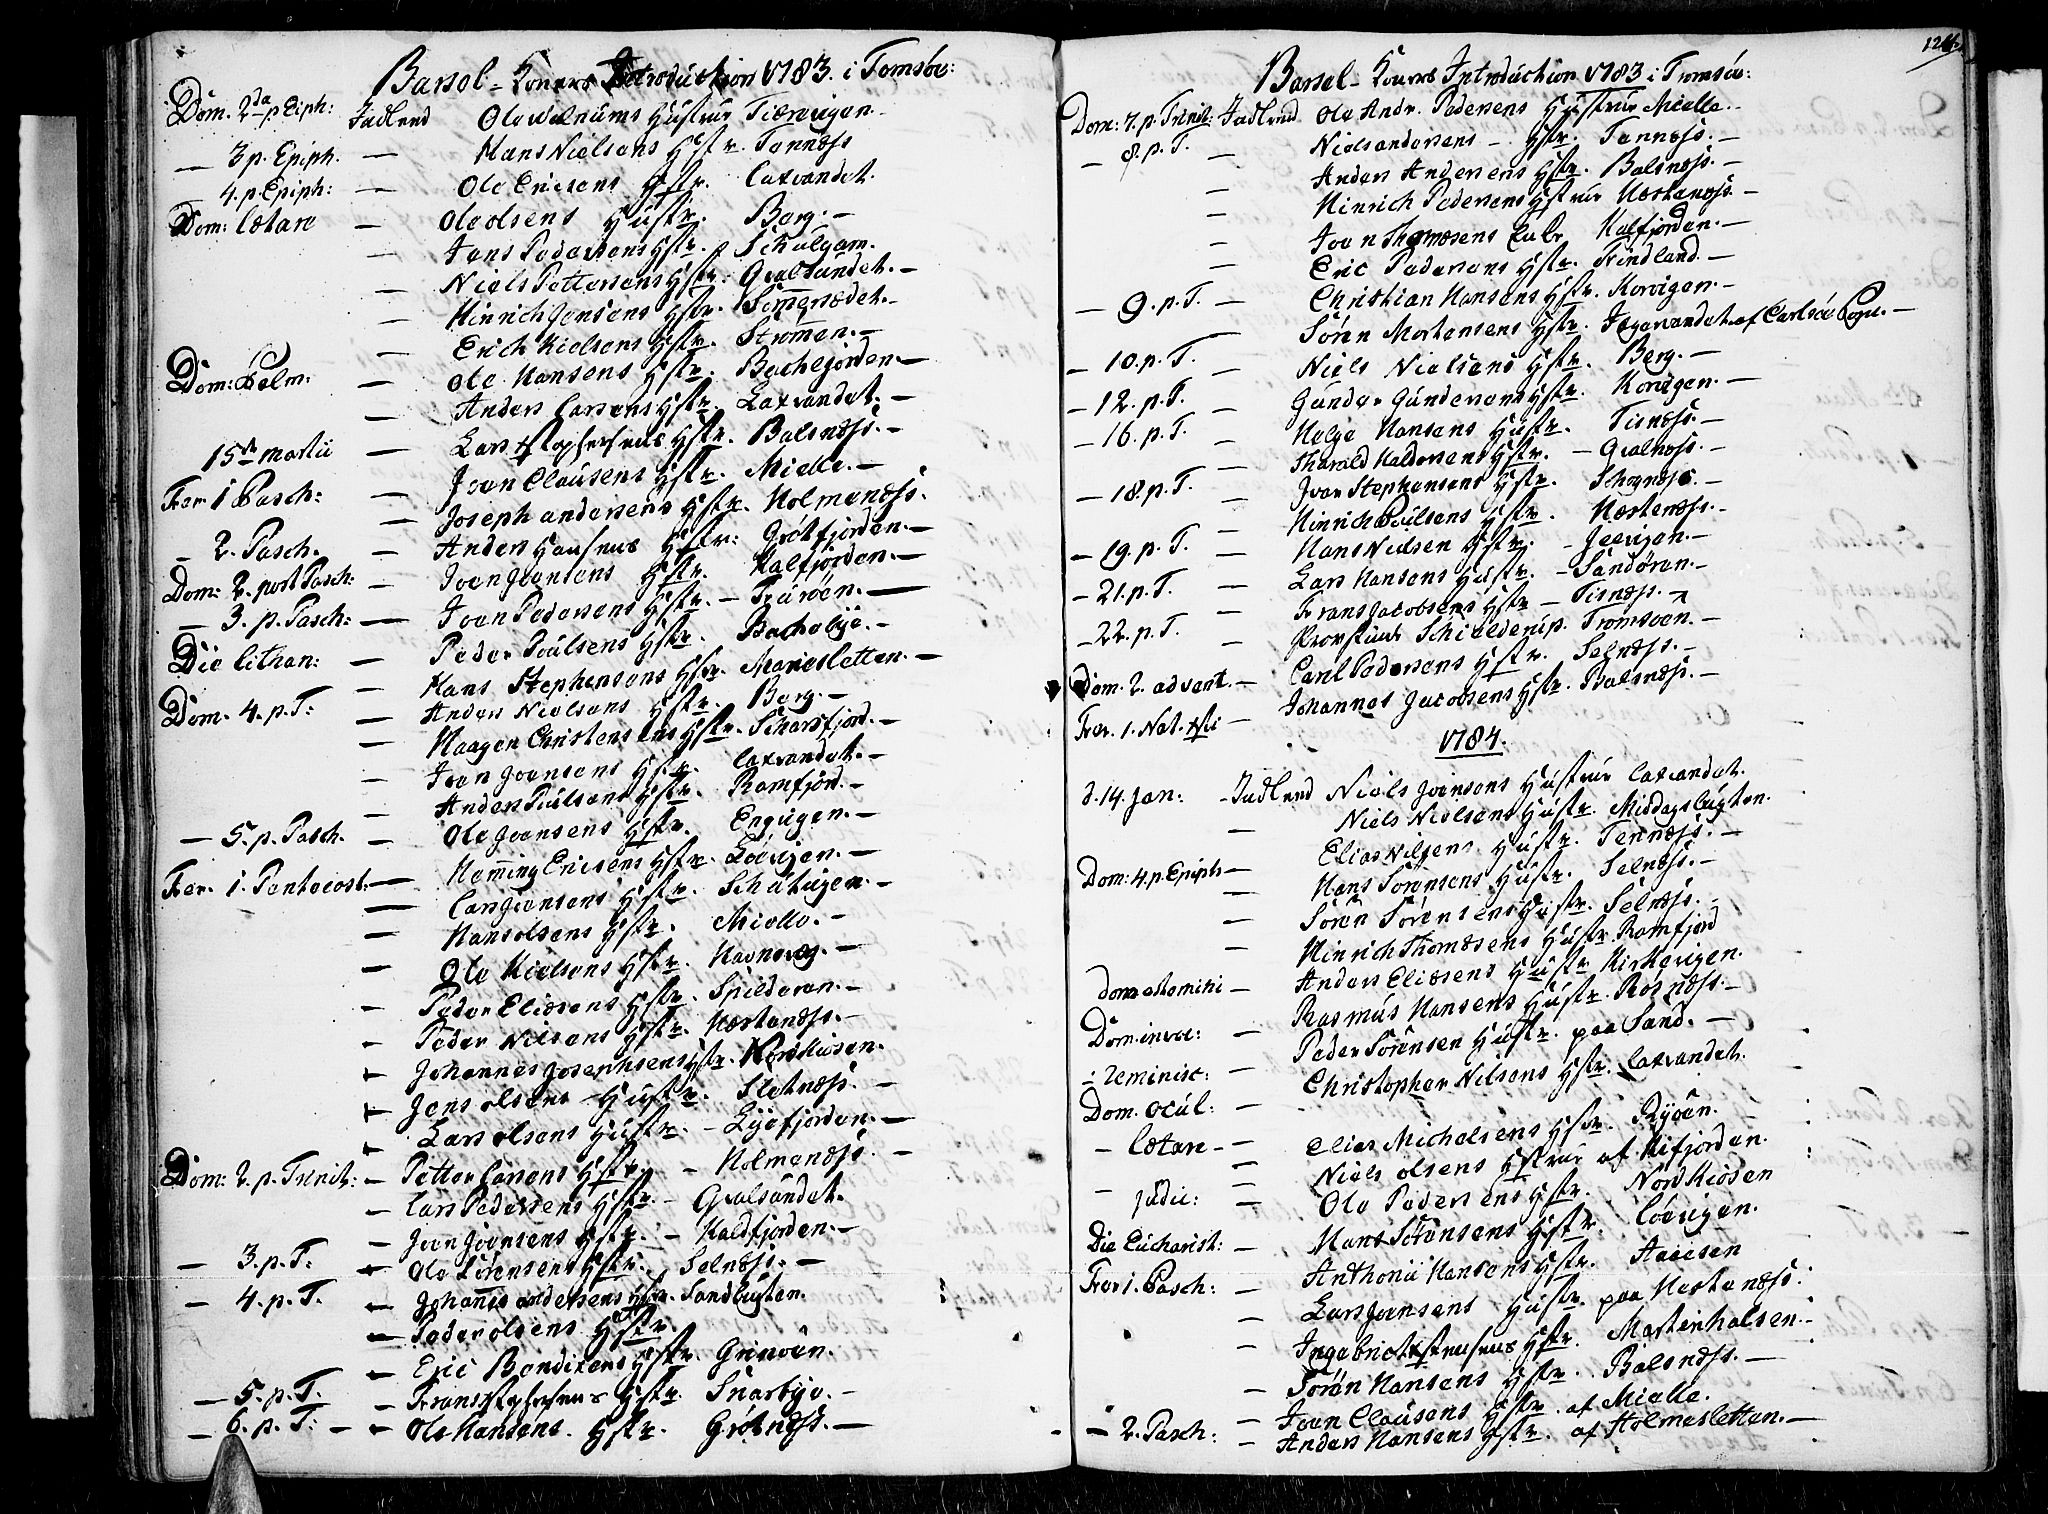 Barsel-Koners Introduction 1783. i Tromsöe:
Dom. 2da p Epiph: Indlend Ole Walnums Hustrue
— 3 p. Epiph. — Hans Nielsens Hstr. Tonnæss
— 4. p Epiph: — Ole Ericsens Hstr. Laxvandet.
Dom: Lætare — Ole Olsens Hustr. Berg. —
Jens Pedersens Hstr. Schulgam.
— Niels Pettersens Hstr. Qvalsundet. —
— Hinrich Jensens Hstr. Sommersædet. —
— Erich Nielsens Hstr. Strömen. —
Dom: Palm: — Ole Hansens Hstr. Bachejorden —
— Anders Larsens Hstr. Laxvandet. —
15de Martii — Lars Xstophersens Hstr. Balsnæss. —
Fer 1 Pasch: — Joen Clausens Hstr. Mielle. —
— Joseph Andersens Hstr. Holmenæss.
— 2. Pasch. — Anders Hansens Hstr: Grötfjorden. —
Dom: 2. post Pasch: — Joen Joensens Hstr. Kalfjorden. —
— 3. p. Pasch: — Joen Pedersens Hstr. —
Die Lithan: — Peder Poulsens Hstr. Bachebye. —
— Hans Stephensens Hstr. Mariesletten. —
Dom. 4. p. T: — Anders Nielsens Hstr. Berg. —
— Haagen Christensens Hstr. Scharsfjord. —
— Joen Joensens Hstr. Laxvandet. —
— Anders Poulsens Hstr. Ramfjord. —
— 5. p. Pasch. — Ole Joensens Hstr. Engvigen. —
Fer. 1. Pentecost. — Hemming Ericsens Hstr. Löevigen. —
— Lars Jensens Hstr. Schatvigen. —
— Hans Olsens Hstr. Mielle. —
— Ole Nielsens Hstr. Havnevæg. —
— Peder Eliæsens Hstr. Spilderen. —
— Peder Nilsens Hstr. Hæstenæss. —
— Johannes Josephsens Hstr. Nordkiosen.
— Jens Olsens Hustr. Sletnæss. —
— Lars Olsens Hustr. — Lyefjorden. —
Dom: 2. p. Trinit: — Petter Larsens Hstr. — Holmenæss. —
— Lars Pedersens Hstr. — Qvalsundet.
— Joen Joensens Hstr. — Kaldfjorden. —
— 3. p. T: — Ole Sörensens Hstr. Selnæss. —
— 4. p. T. — Johannes Andersens Hstr. Sandbugten.
— Peder Olsens Hstr.
— Eric Bendixens Hstr. Grinöen.
— 5. p. T. — Frans Xstophersens Hstr. Snarbye. —
— 6. p. T: — Ole Hansens. Hstr. Grötnæss. —
124.
Barsel-Koners Introduction 1783 i Tromsöe:
Dom: 7. p. Trinit: Indlend Ole Andr. Pedersens Hustrue Mielle. —
— 8. p. T. — Niels Andersens — Hstr. Tennæss. —
— Anders Andersens Hstr. Balsnæss. —
— Hinrich Pedersens Hstrue Hæstenæss. —
— Joen Thomæsens Kalfjorden. —
— Eric Pedersens Hstr. Tindland. —
— 9. p. T. — Christian Hansens Hstr. Korvigen. —
Sören Mortensens Hstr. Jægervandet af Carlsöe Sogn. —
— 10. p. T. — Niels Nielsens Hstr. Berg. —
— 12. p. T. — Gunder Gundersens Hstr. Korvigen. —
— 16. p. T. — Helge Hansens Hustr. Tisnæss. —
— Tharald Haldorsens Hstr. — Qvalnæss. —
— 18. p. T. — Iver Stephensens Hstr. Schognæss. —
— Hinrich Poulsens Hstr. Hæstenæss. —
— 19. p. T. — Hans Nielsen Hstr. — Jeevigen. —
— 21. p. T. — Lars Hansens Hustr. — Sandören. —
— Frans Jacobsens Hstr — Tisnæss. —
— 22. p. T. — Provstinde Schielderup. Tromsöen. —
Dom. 2. advent. — Carl Pedersens Hstr. Selnæss. —
Fer. 1. Nat. Xsti — Johannes Jacobsens Hstr. Balsnæss. —
1784.
d. 14 Jan: — Indlend Niels Joensens Hustrue Laxvandet.
— Niels Nielsens Hustr. Middagsbugten.
Dom: 4. p. Epiph — Elias Nilsens Hustr. Tennæss. —
— Hans Sörensens Hustr. Selnæss. —
— Sören Sörensens Hustr. Selnæss. —
— Hinrich Thomæsens Hustr. Ramfjord
Dom esto mihi — Anders Eliæsens Hustr. Kirkevigen.
Dom. invoc: — Rasmus Hansens Hustr. Rösnæss. —
— reminisc: — Peder Sörensen Hustr. paa Sand. —
Dom. Ocul: — Christopher Nilsens Hstr. Laxvandet.
— Lætare — Elias Michelsens Hstr. Ryöen.
— Niels Olsens Hstrue af Kifjorden.
— Judic: — Ole Pedersens Hstr. Nordkiosen
Die Eucharist: — Hans Sörensens Hstr. Löevigen.
Fer 1. Pasch: — Anthonii Hansens Hstr.
Lars Joensens Hustr. paa Hestenæss.
— Ingebrict Xstensens Hstr. Mortenhalsen. —
— Sörön Hansens Hstr. Balsnæss. —
— Joen Clausens Hstr. af Mielle.
— 2. Pasch: — Anders Hansens Hstr. af Holmesletten. —